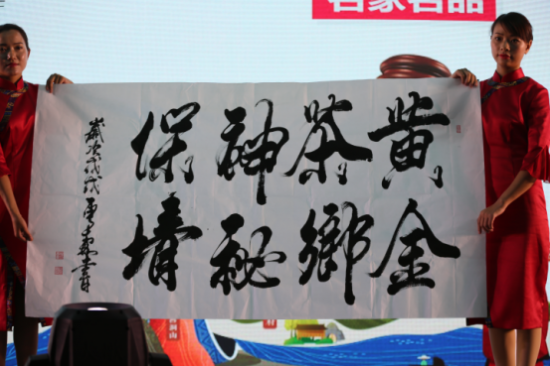 名家名品
黄金
茶鄉
神秘
保靖
歲次戊戌